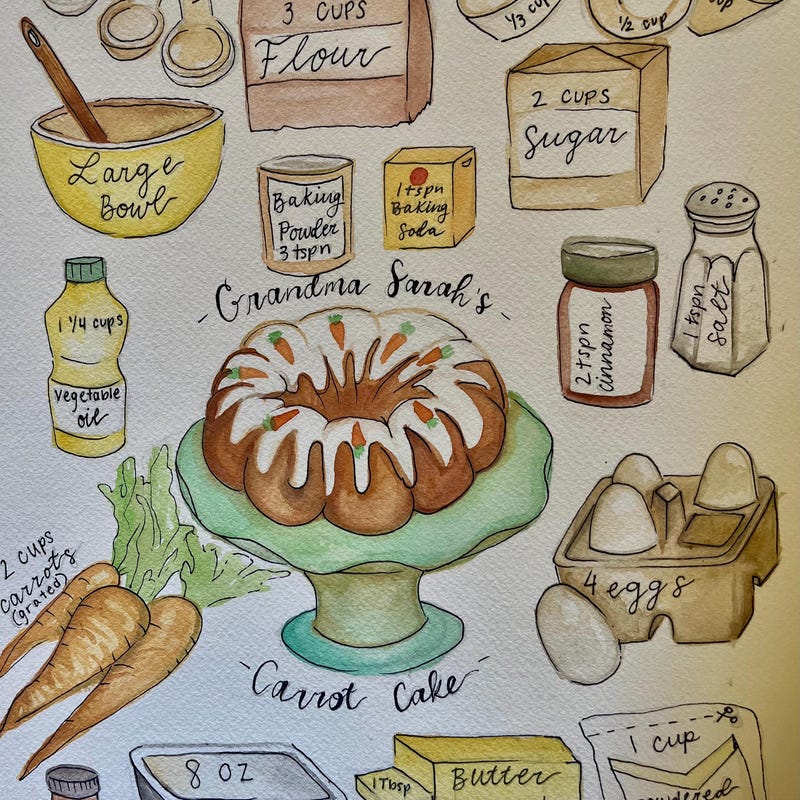 3 CUPS
Flour
1/3 cup
1/2 cup
cup
2 CUPS
Sugar
Large
Bowl
Baking
Powder
3 tspn
1 tspn
Baking
Soda
1 tspn
salt
Grandma Sarah's
1 1/4 cups
vegetable
oil
2 tspn
cinnamon
2 cups
carrots
(grated)
4 eggs
Carrot Cake
8 OZ
1 Tbsp
Butter
1 cup
powdered